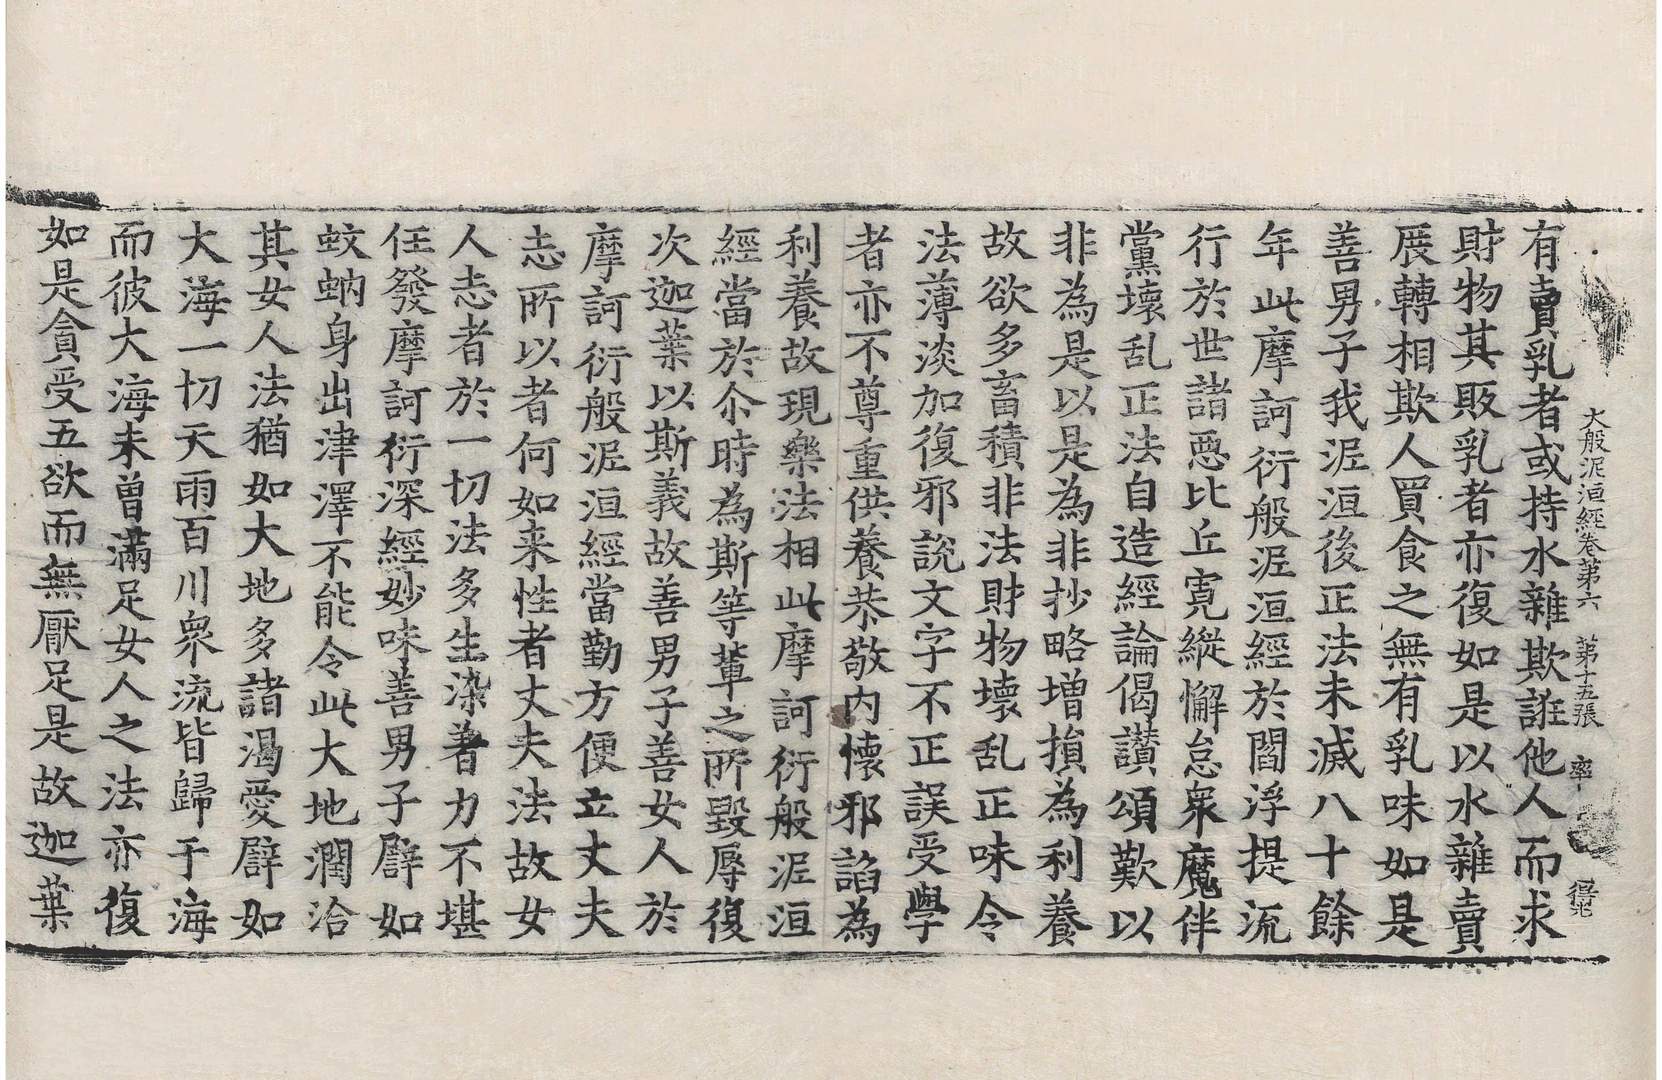 大般泥洹經卷第六 第十五張 率
有賣乳者或持水雜欺誑他人而求
財物其販乳者亦復如是以水雜賣
展轉相欺人買食之無有乳味如是
善男子我泥洹後正法未滅八十餘
年此摩訶衍般泥洹經於閻浮提流
行於世諸惡比丘寬縱懈怠衆魔伴
黨壞乱正法自造經論偈讃頌歎以
非為是以是為非抄略增損為利養
故欲多畜積非法財物壞乱正味令
法薄淡加復邪說文字不正誤受學
者亦不尊重供養恭敬内懷邪諂為
利養故現樂法相此摩訶衍般泥洹
經當於尒時為斯等輩之所毀辱復
次迦葉以斯義故善男子善女人於
摩訶衍般泥洹經當勤方便立丈夫
志所以者何如来性者丈夫法故女
人志者於一切法多生染著力不堪
任發摩訶衍深經妙味善男子譬如
蚊蚋身出津澤不能令此大地潤洽
其女人法猶如大地多諸渴愛譬如
大海一切天雨百川衆流皆歸于海
而彼大海未曾滿足女人之法亦復
如是貪受五欲而無厭足是故迦葉